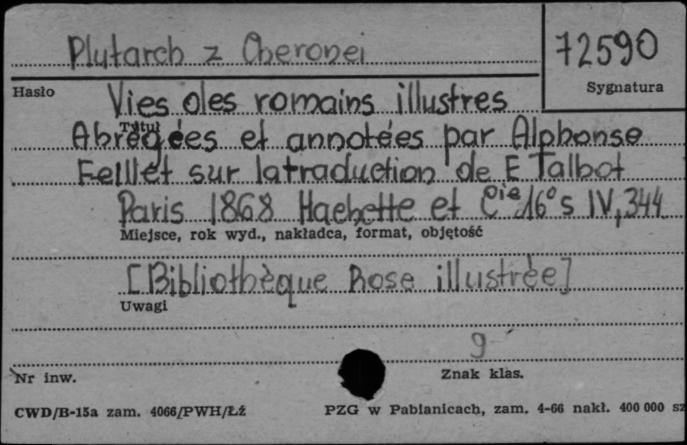 Plutarch z Cheronei
72590
Hasło
Sygnatura
Vies des romains illustres
Tytuł
Abrégées et annotées par Alphonse
Feillet sur latraduction de E Talbot
Paris 1868 Hachette et Cie 16° s IV, 344
Miejsce, rok wyd., nakładca, format, objętość
[Bibliothèque Rose illustrée]
Uwagi
9
Nr inw.
Znak klas.
CWD/B-15a zam. 4066/PWH/Łź
PZG w Pabianicach, zam. 4-66 nakł. 400 000 sz